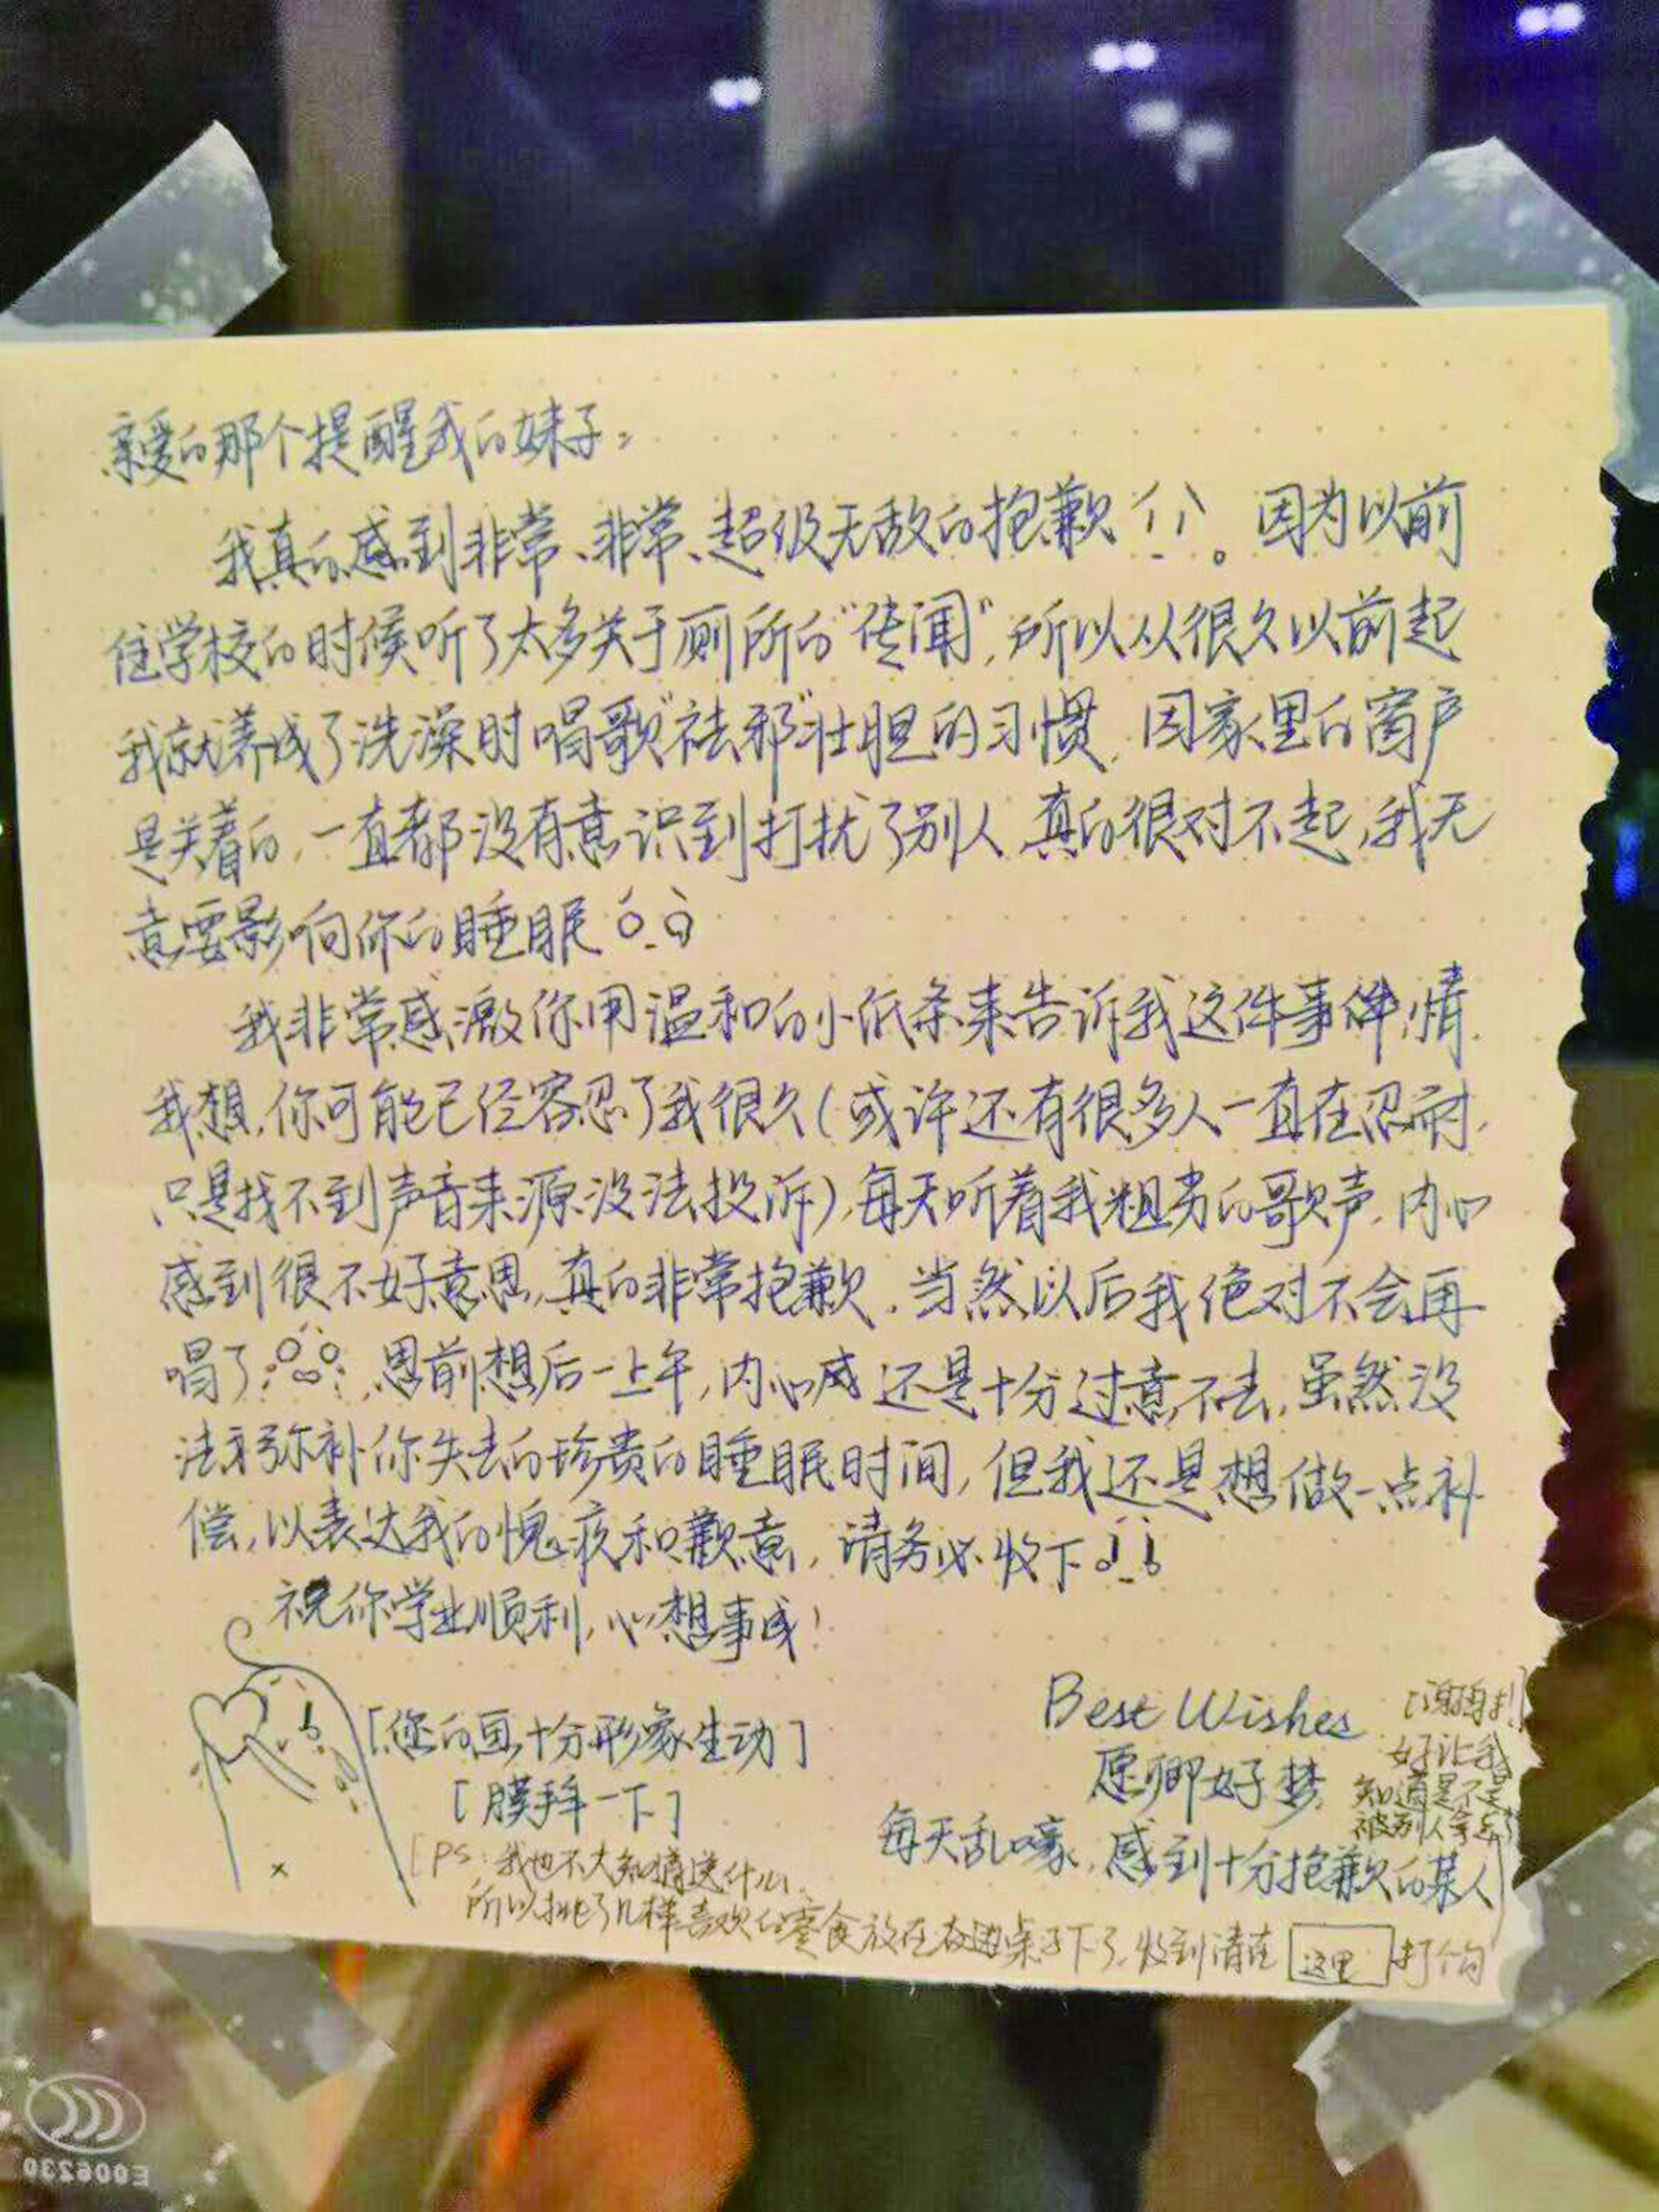 亲爱的那个提醒我的妹子：
我真的感到非常、非常、超级无敌的抱歉！！。因为以前
住学校的时候听了太多关于厕所的“传闻”，所以从很久以前起
我就养成了洗澡时唱歌“祛邪”壮胆的习惯，因家里的窗户
是关着的，一直都没有意识到打扰了别人，真的很对不起，我无
意要影响你的睡眠
我非常感激你用温和的小纸条来告诉我这件事件情，
我想，你可能已经容忍了我很久（或许还有很多人一直在忍耐，
只是找不到声音来源没法投诉），每天听着我粗劣的歌声，内心
感到很不好意思，真的非常抱歉，当然以后我绝对不会再
唱了，思前想后一上午，内心还是十分过意不去，虽然没
法弥补你失去的珍贵的睡眠时间，但我还是想做一点补
偿，以表达我的愧疚和歉意，请务必收下
祝你学业顺利，心想事成！
[您的画十分形象生动]
[膜拜一下]
Best Wishes
愿卿好梦
每天乱嚎，感到十分抱歉的某人
[PS：我也不大知道送什么，
所以挑了几样喜欢的零食放在右边桌子下了，收到请在 这里 打个勾
好让我
知道是不是
被别人拿走了
E006230